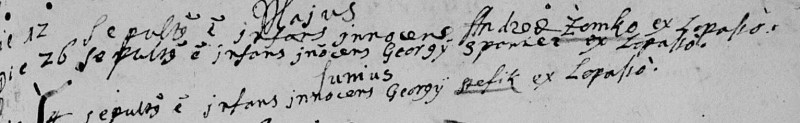 Majus
die 12 sepultꝰ ē infans innocens Andreæ Zomko ex Lopasiò.
Die 26 sepultꝰ ē infans inocens Georgÿ Spanner ex Lopasiò.
Junius
4 sepultꝰ ē infans innocens Georgÿ stefik ex Lopasiò.